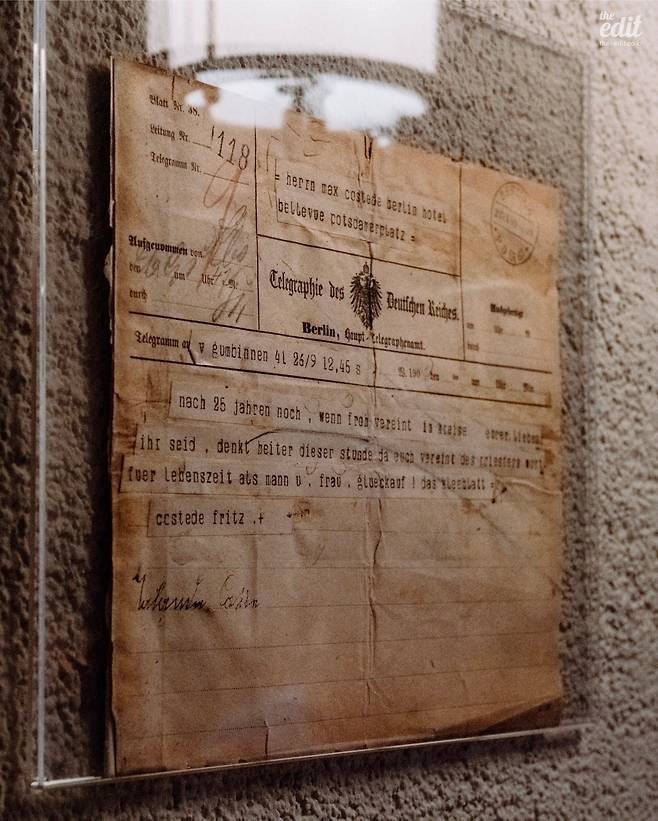 the
edit
Blatt Nr. 48.
Leitung Nr. 118
Telegramm Nr.
= herrn max costede berlin hotel
bellevue potsdamerplatz =
Aufgenommen von
den um Uhr Mi.
durch
Telegraphie des Deutschen Reiches.
Berlin, Haupt-Telegraphenamt.
Ausgefertigt
Telegramm v gumbinnen 41 26/9 12,45 s
190
nach 25 jahren noch , wenn froh vereint im kreise eurer lieben
ihr seid , denkt heiter dieser stunde da euch vereint des priesters wort
fuer lebenszeit als mann u , frau , glueckauf ! das kleeblatt =
costede fritz .+